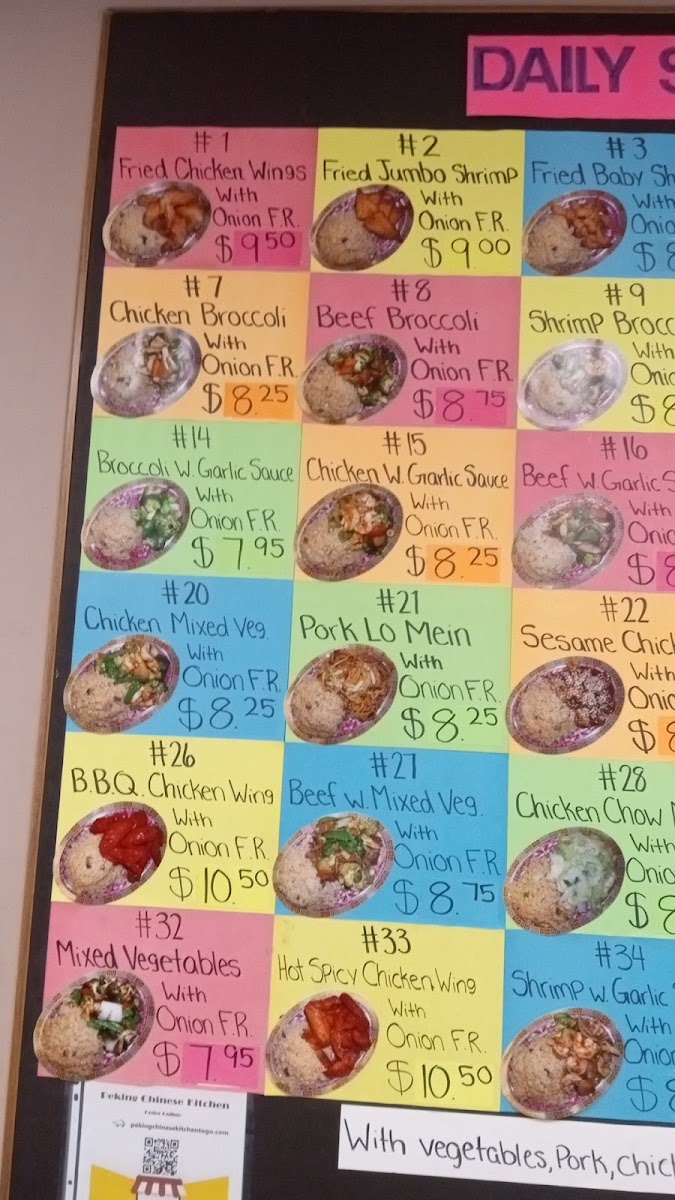 DAILY
#1
Fried Chicken Wings
With
Onion F.R.
$9.50
#2
Fried Jumbo Shrimp
With
Onion F.R.
$9.00
#3
Fried Baby Sh
With
Onio
$8
#7
Chicken Broccoli
With
Onion F.R.
$8.25
#8
Beef Broccoli
With
Onion F.R.
$8.75
#9
Shrimp Brocc
With
Onio
$8
#14
Broccoli W. Garlic Sauce
With
Onion F.R.
$7.95
#15
Chicken W. Garlic Sauce
With
Onion F.R.
$8.25
#16
Beef W. Garlic S
With
Onio
$8
#20
Chicken Mixed Veg.
With
Onion F.R.
$8.25
#21
Pork Lo Mein
With
Onion F.R.
$8.25
#22
Sesame Chick
With
Onio
$8
#26
B.B.Q. Chicken Wing
With
Onion F.R.
$10.50
#27
Beef w. Mixed Veg.
With
Onion F.R
$8.75
#28
Chicken Chow
With
Onio
$8
#32
Mixed Vegetables
With
Onion F.R.
$7.95
#33
Hot Spicy Chicken Wing
With
Onion F.R.
$10.50
#34
Shrimp w. Garlic
With
Onion
$8
Peking Chinese Kitchen
Order Online
pekingchinesekitchentogo.com
With vegetables, Pork, Chic